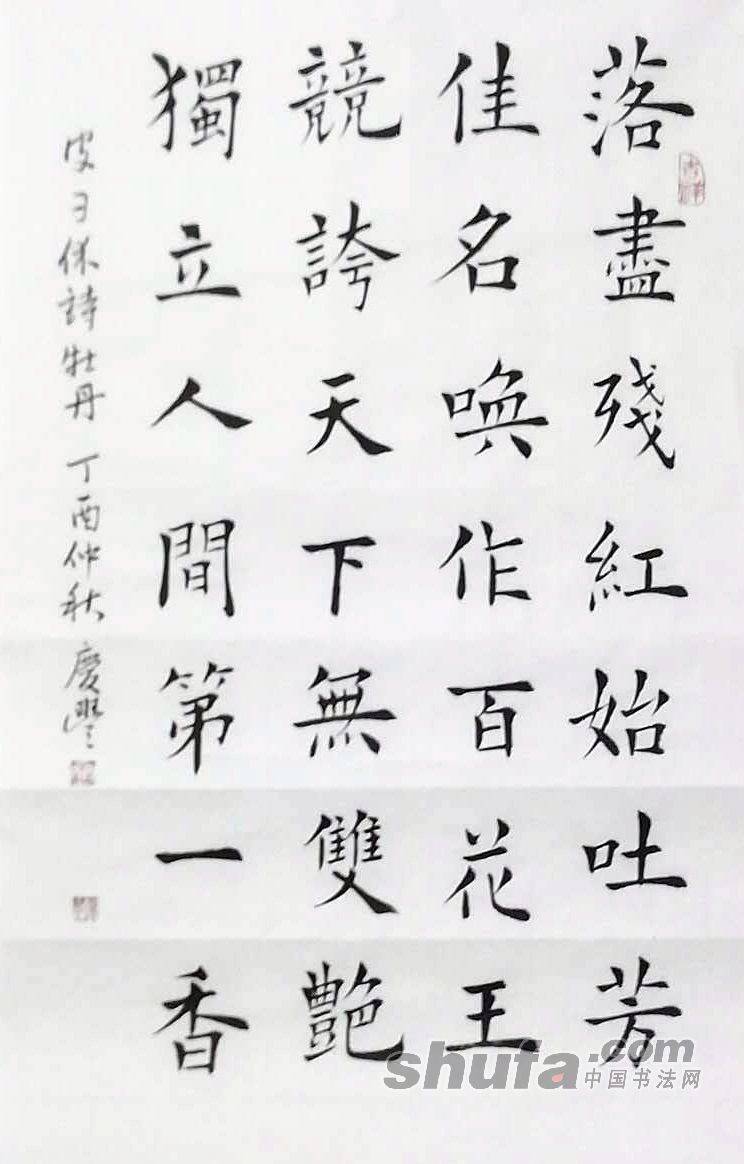 落盡殘紅始吐芳
佳名喚作百花王
競誇天下無雙艷
獨立人間第一香
皮日休詩牡丹 丁酉仲秋 慶豐
shufa.com
中国书法网